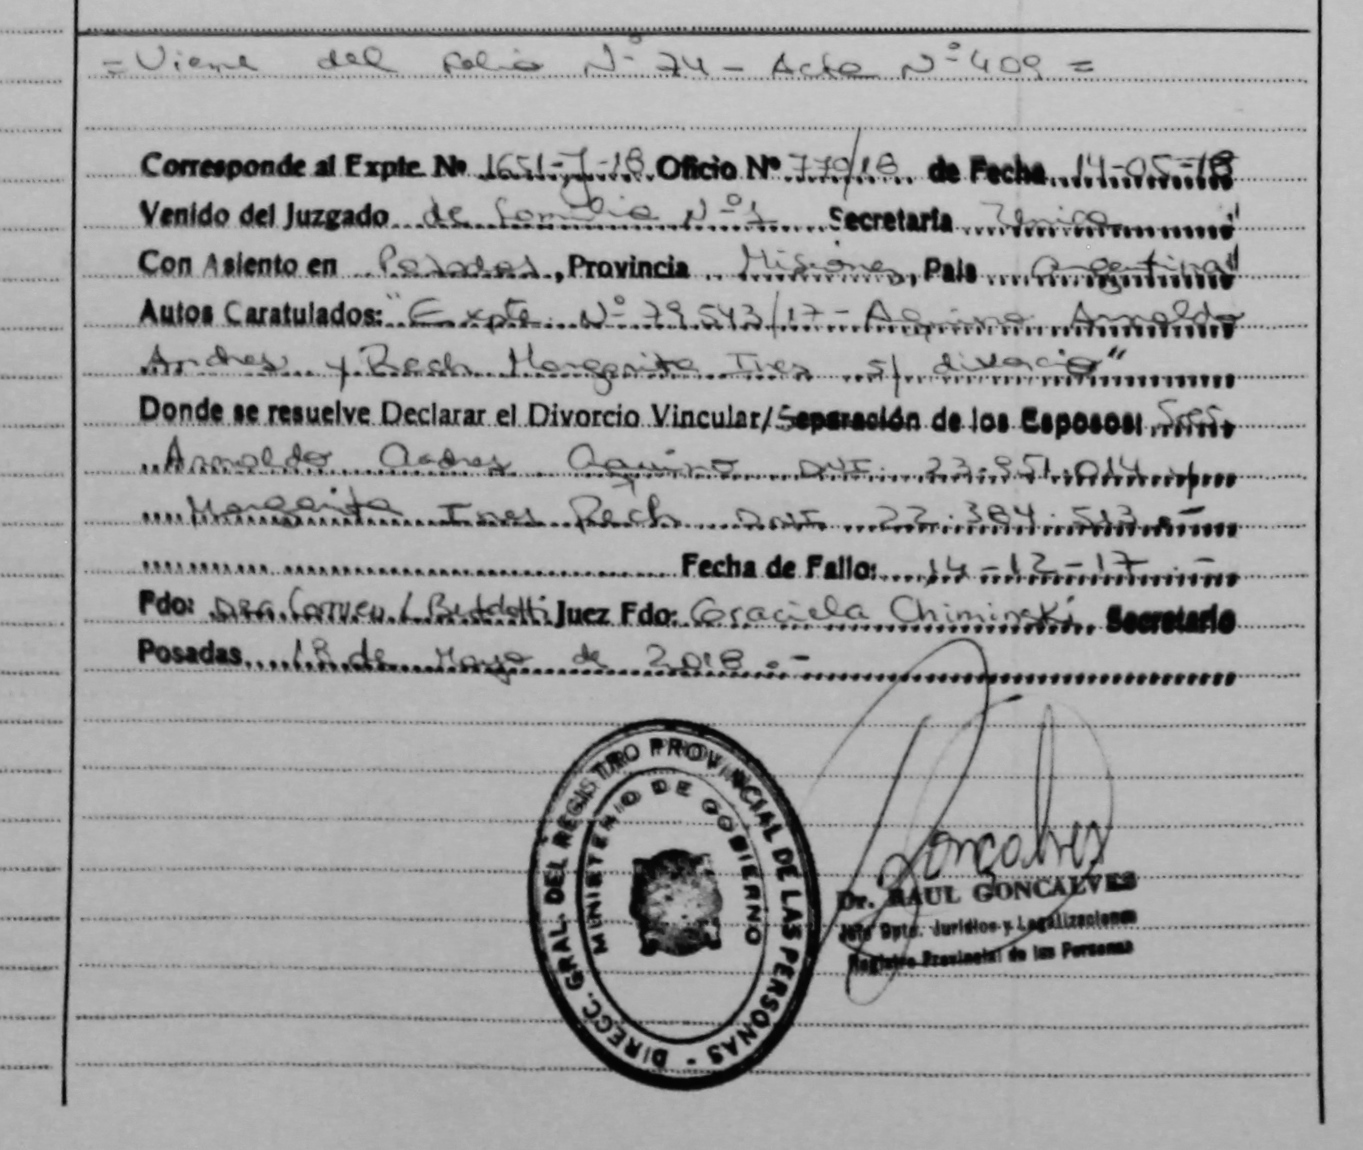 = Viene del folio Nº 74 - Acta Nº 409 =
Corresponde al Expte. Nº 1651-7-18 Oficio Nº 770/18 de Fecha 14-05-18
Venido del Juzgado de familia Nº 1 Secretaría Única
Con Asiento en Posadas, Provincia Misiones, País Argentina
Autos Caratulados: "Expte. Nº 79.543/17 - Aquino Arnoldo
Andres y Rech Margarita Ines s/ divorcio"
Donde se resuelve Declarar el Divorcio Vincular/Separación de los Esposos: Sres
Arnoldo Andres Aquino DNI. 23.951.014 y
Margarita Ines Rech DNI 22.384.513.-
Fecha de Fallo: 14-12-17.-
Fdo: Dra. Carmen Juez Fdo: Graciela Chiminski Secretario
Posadas 18 de Mayo de 2018.-
DIRECC. GRAL. DEL REGISTRO PROVINCIAL DE LAS PERSONAS -
MINISTERIO DE GOBIERNO
Goncalves
Dr. RAUL GONCALVES
Jefe Dpto. Jurídico y Legalizaciones
Registro Provincial de las Personas